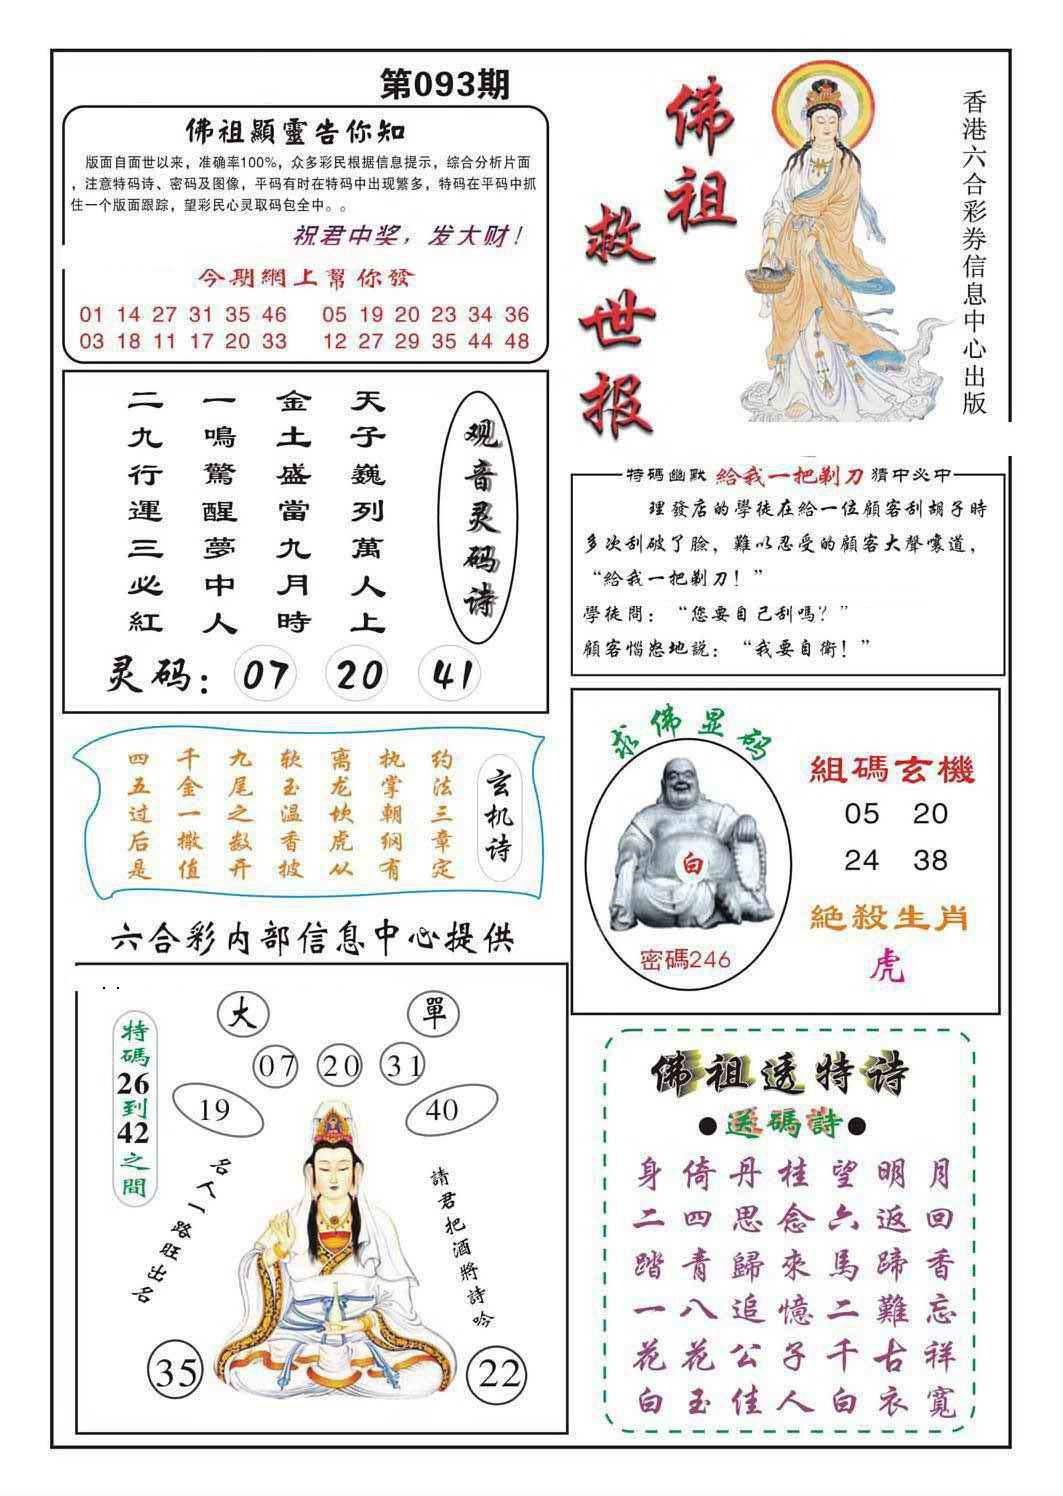 第093期
佛祖顯靈告你知
版面自面世以来，准确率100%，众多彩民根据信息提示，综合分析片面
，注意特码诗、密码及图像，平码有时在特码中出现繁多，特码在平码中抓
住一个版面跟踪，望彩民心灵取码包全中。。
祝君中奖，发大财！
今期網上幫你發
01 14 27 31 35 46 05 19 20 23 34 36
03 18 11 17 20 33 12 27 29 35 44 48
佛祖
救世报
香港六合彩券信息中心出版
观音灵码诗
天子巍列萬人上
金土盛當九月時
一鳴驚醒夢中人
二九行運三必紅
灵码：07 20 41
特碼幽默 給我一把剃刀 猜中必中
理發店的學徒在給一位顧客刮胡子時
多次刮破了臉，難以忍受的顧客大聲嚷道，
“給我一把剃刀！”
學徒問：“您要自己刮嗎？”
顧客惱怒地説：“我要自衛！”
玄机诗
约法三章定
执掌朝纲有
离龙坎虎从
软玉温香披
九尾之数开
千金一撒值
四五过后是
求佛显码
白
密碼246
組碼玄機
05 20
24 38
絶殺生肖
虎
六合彩内部信息中心提供
大 單
07 20 31
19 40
特碼26到42之間
名人一路旺出名
請君把酒將詩吟
35 22
佛祖透特诗
●送碼詩●
月回香忘祥寬
明返蹄難古衣
望六馬二千白
桂念來憶子人
丹思歸追公佳
倚四青八花玉
身二踏一花白